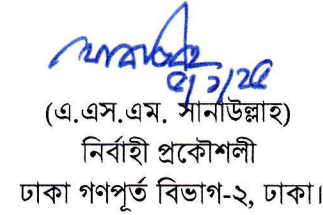 ৫/১/২৫
(এ.এস.এম. সানাউল্লাহ)
নির্বাহী প্রকৌশলী
ঢাকা গণপূর্ত বিভাগ-২, ঢাকা।